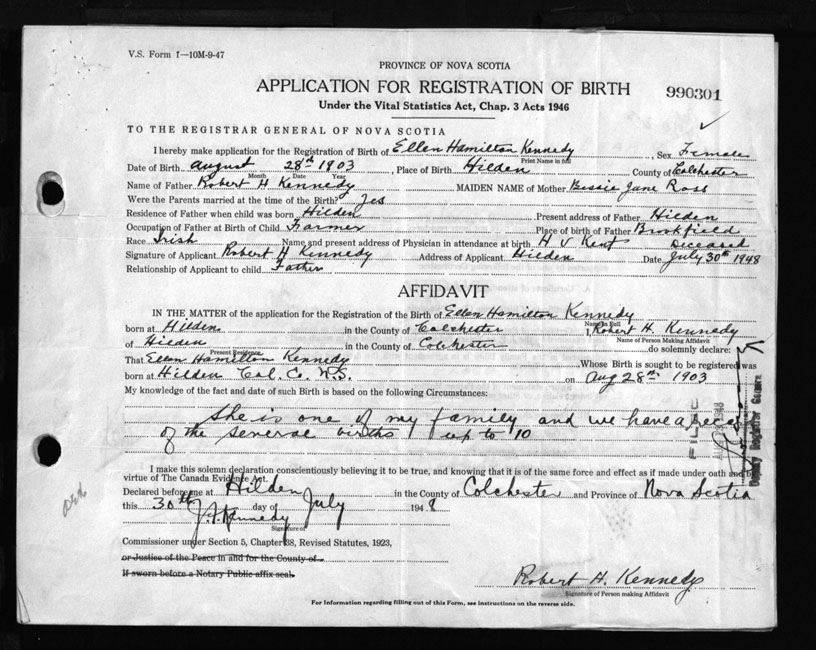 V.S. Form 1—10M-9-47
PROVINCE OF NOVA SCOTIA
APPLICATION FOR REGISTRATION OF BIRTH
990301
Under the Vital Statistics Act, Chap. 3 Acts 1946
TO THE REGISTRAR GENERAL OF NOVA SCOTIA
I hereby make application for the Registration of Birth of Ellen Hamilton Kennedy, Sex Female
Print Name in full
Date of Birth August 28th 1903, Place of Birth Hilden County of Colchester
Month Date Year
Name of Father Robert H Kennedy MAIDEN NAME of Mother Bessie Jane Ross
Were the Parents married at the time of the Birth? Yes
Residence of Father when child was born Hilden Present address of Father Hilden
Occupation of Father at Birth of Child Farmer Place of birth of Father Brookfield
Race Irish Name and present address of Physician in attendance at birth H V Kent Deceased
Signature of Applicant Robert H Kennedy Address of Applicant Hilden Date July 30th 1948
Relationship of Applicant to child Father
AFFIDAVIT
IN THE MATTER of the application for the Registration of the Birth of Ellen Hamilton Kennedy
Name in Full
born at Hilden in the County of Colchester I, Robert H. Kennedy
Name of Person Making Affidavit
of Hilden in the County of Colchester do solemnly declare:
Present Residence
That Ellen Hamilton Kennedy Whose Birth is sought to be registered was
born at Hilden Col. Co. N.S. on Aug 28th 1903
My knowledge of the fact and date of such Birth is based on the following Circumstances:
She is one of my family and we have a
of the several births up to 10
FILED
I make this solemn declaration conscientiously believing it to be true, and knowing that it is of the same force and effect as if made under oath and by
virtue of The Canada Evidence Act.
Declared before me at Hilden in the County of Colchester and Province of Nova Scotia
this 30th day of July 1948
Kennedy
Signature of
Commissioner under Section 5, Chapter 38, Revised Statutes, 1923,
or Justice of the Peace in and for the County of
If sworn before a Notary Public affix seal.
Robert H. Kennedy
Signature of Person making Affidavit
For Information regarding filling out of this Form, see instructions on the reverse side.